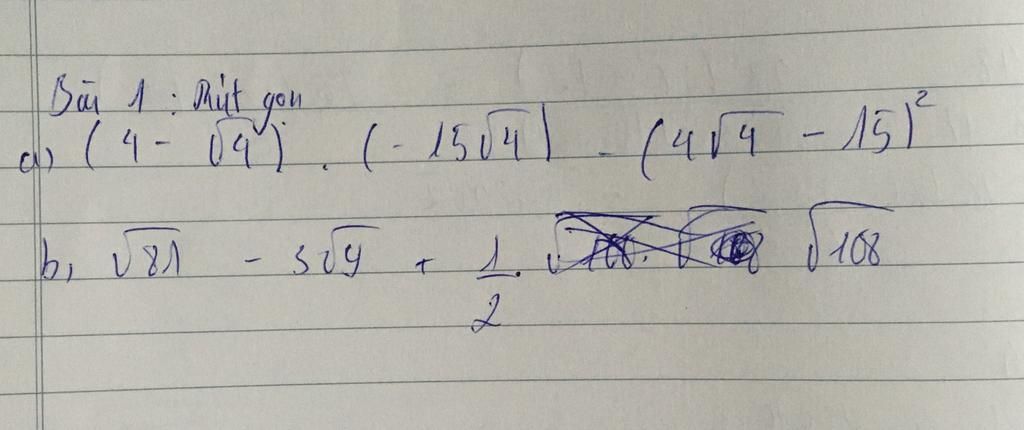 Bài 1 : Rút gọn
a) (4 - √4) . (- 15√4) - (4√4 - 15)²
b, √81 - 3√9 + 1/2 . √108